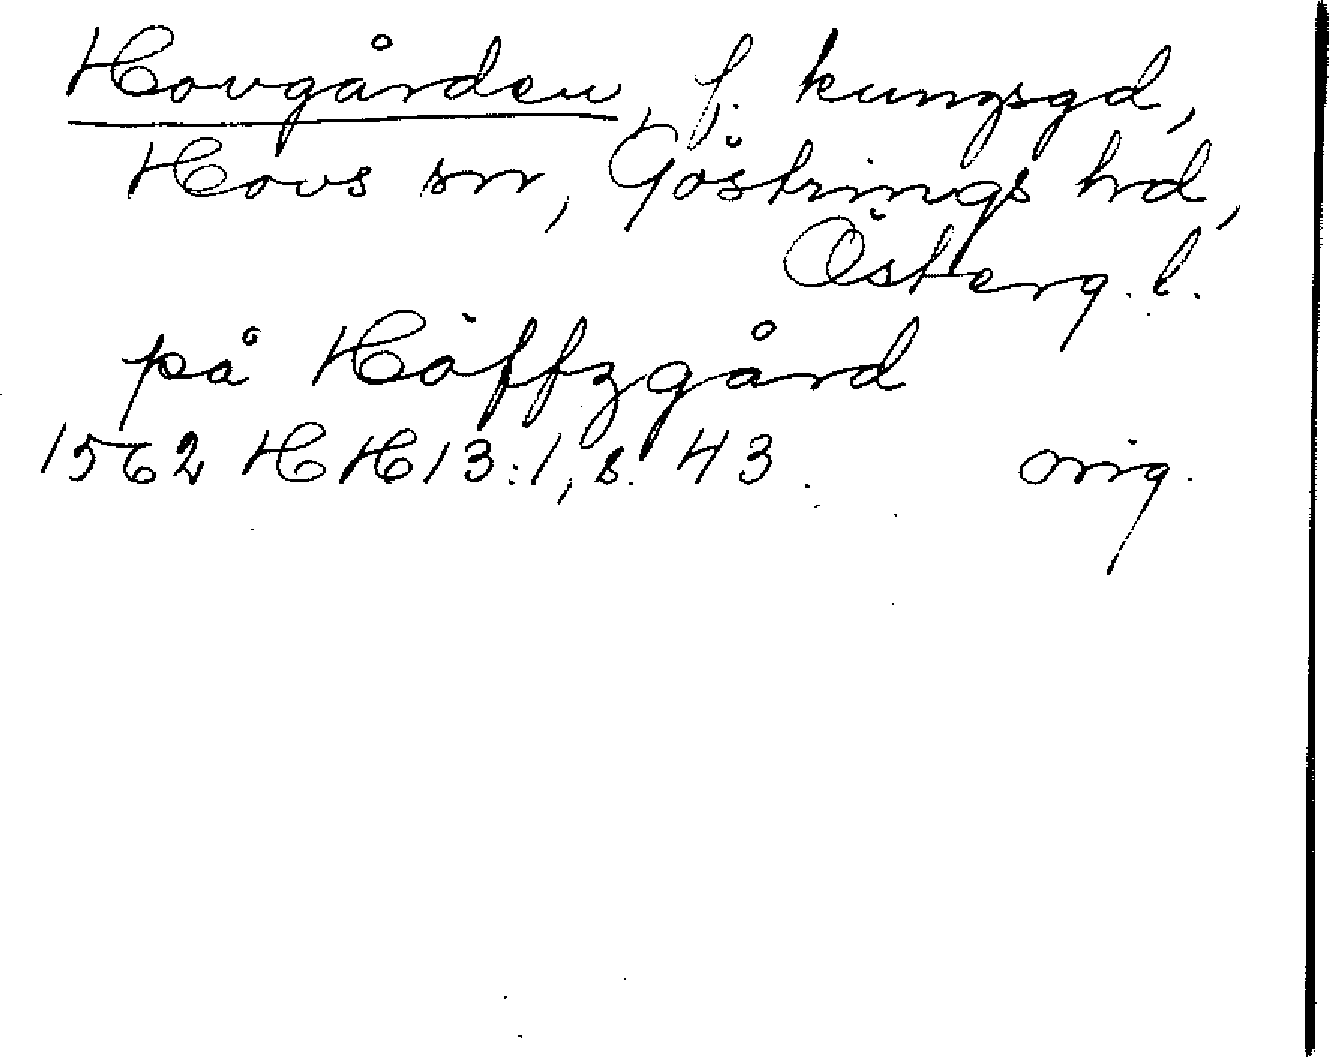 Hovgården, f. kungsgd,
Hovs sn, Göstrings hd,
Österg. l.
på Höffzgård
1562 HH 13:1, s. 43. orig.